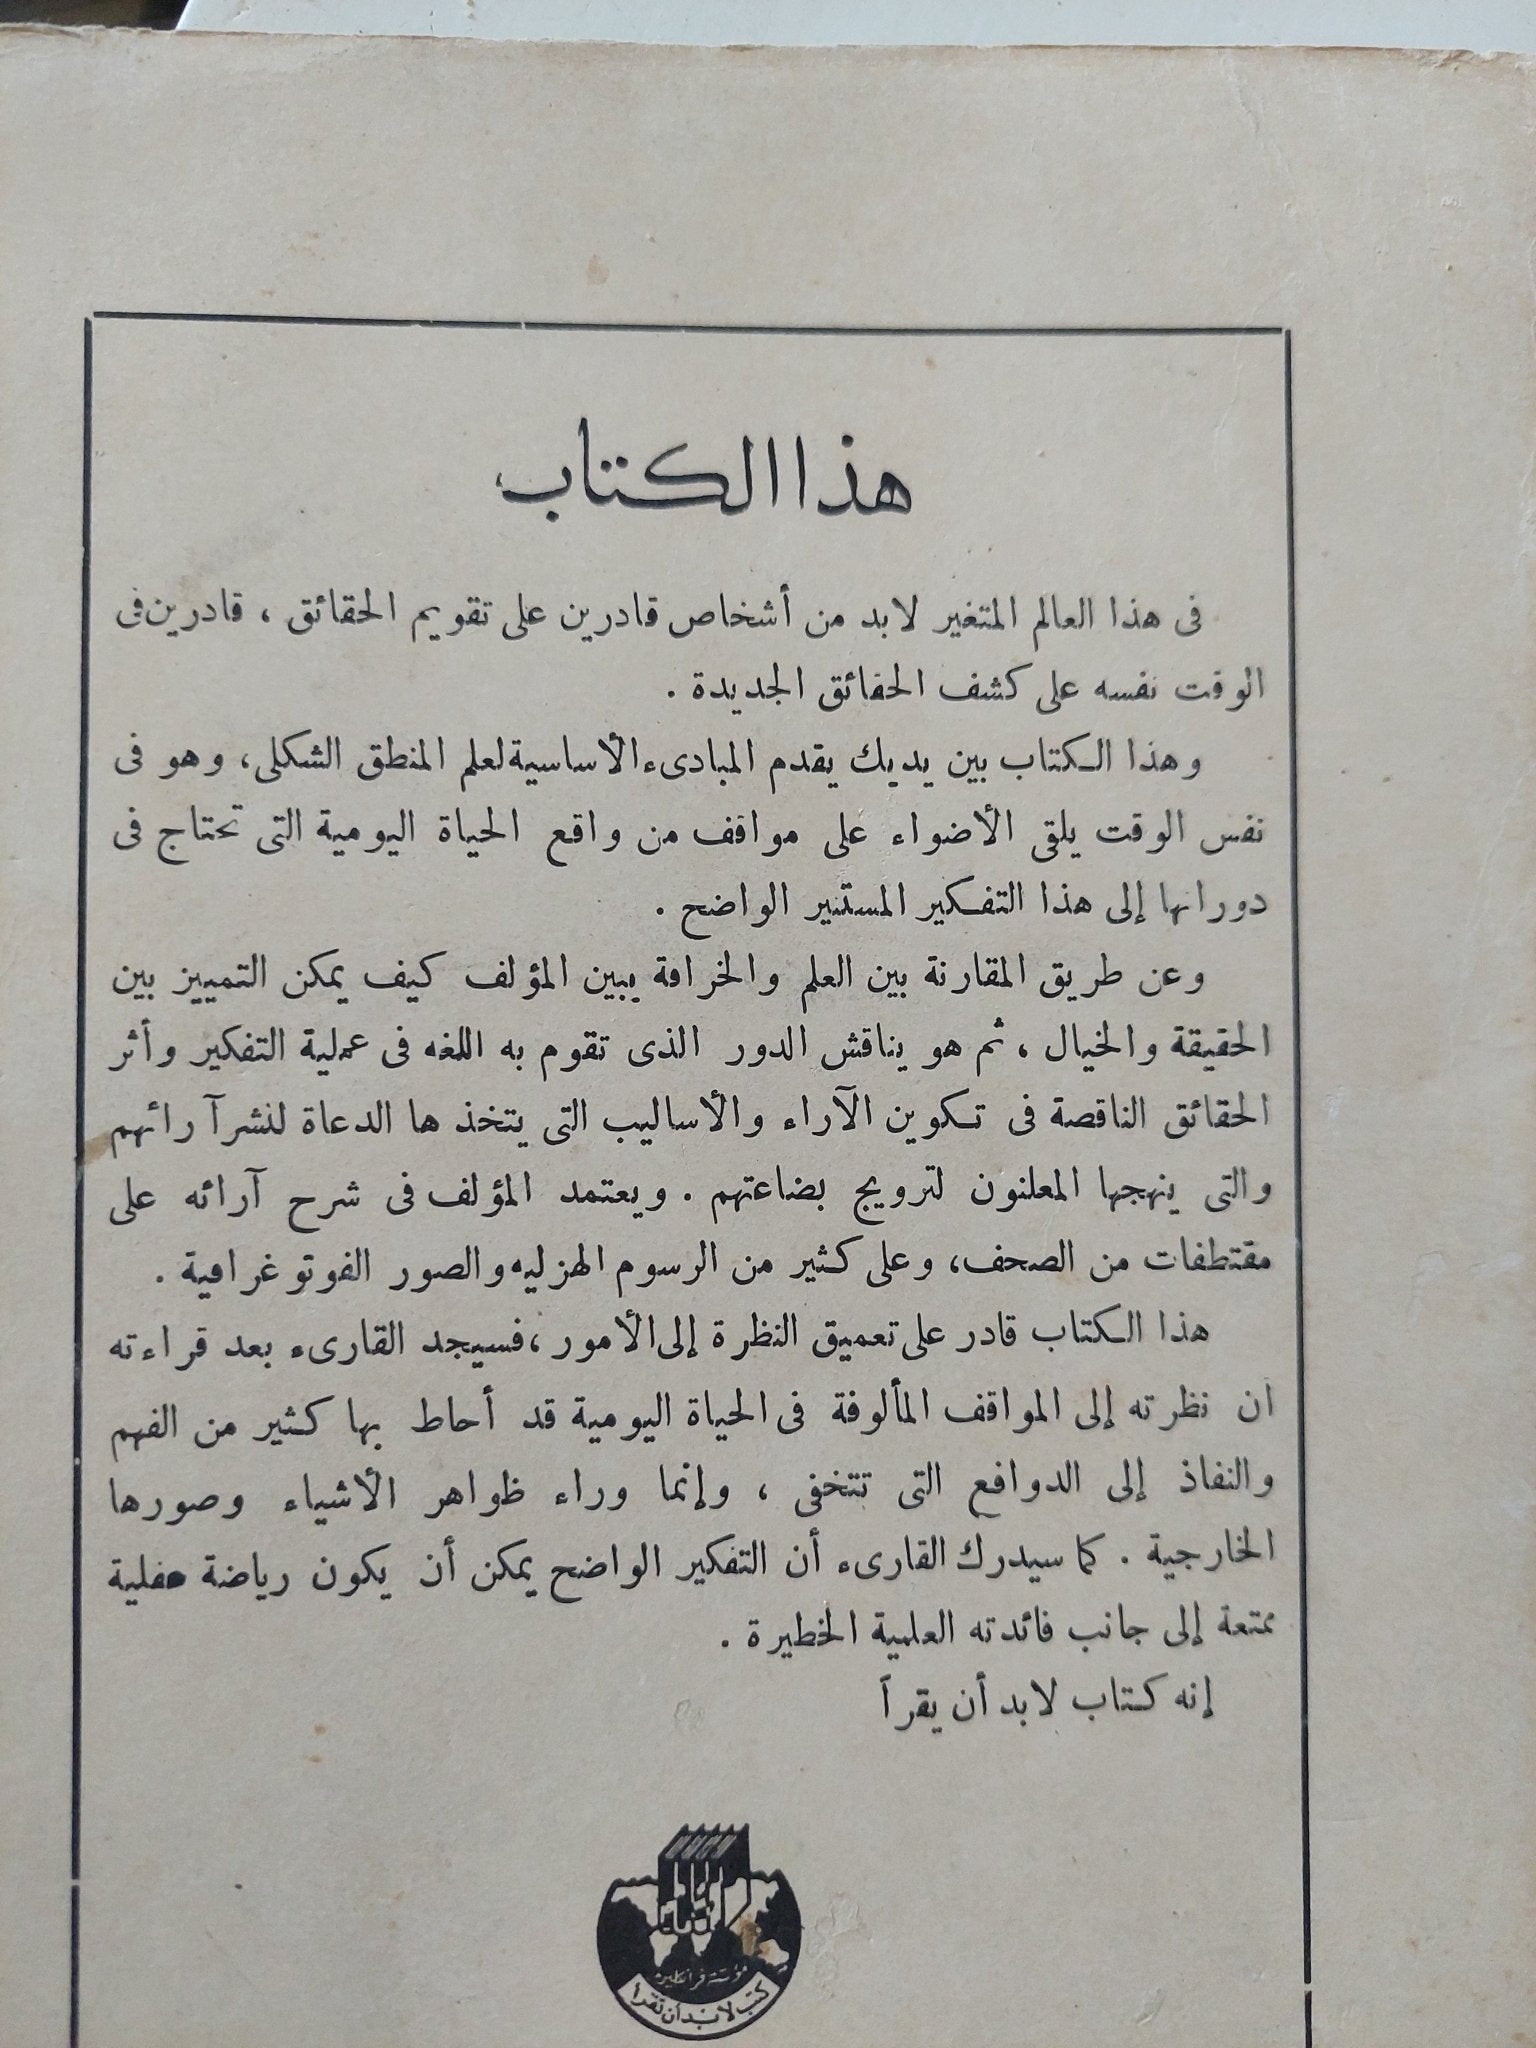 هذا الكتاب
فى هذا العالم المتغير لابد من أشخاص قادرين على تقويم الحقائق ، قادرين فى
الوقت نفسه على كشف الحقائق الجديدة .
وهذا الكتاب بين يديك يقدم المبادىء الأساسية لعلم المنطق الشكلى ، وهو فى
نفس الوقت يلقى الأضواء على مواقف من واقع الحياة اليومية التى تحتاج فى
دورانها إلى هذا التفكير المستنير الواضح .
وعن طريق المقارنة بين العلم والخرافة يبين المؤلف كيف يمكن التمييز بين
الحقيقة والخيال ، ثم هو يناقش الدور الذى تقوم به اللغه فى عملية التفكير وأثر
الحقائق الناقصة فى تكوين الآراء والأساليب التى يتخذ ها الدعاة لنشر آرائهم
والتى ينهجها المعلنون لترويج بضاعتهم . ويعتمد المؤلف فى شرح آرائه على
مقتطفات من الصحف ، وعلى كثير من الرسوم الهزليه والصور الفوتوغرافية .
هذا الكتاب قادر على تعميق النظرة إلى الأمور ، فسيجد القارىء بعد قراءته
ان نظرته إلى المواقف المألوفة فى الحياة اليومية قد أحاط بها كثير من الفهم
والنفاذ إلى الدوافع التى تتخفى ، وإنما وراء ظواهر الأشياء وصورها
الخارجية . كما سيدرك القارىء أن التفكير الواضح يمكن أن يكون رياضة عقلية
ممتعة إلى جانب فائدته العلمية الخطيرة .
إنه كتاب لابد أن يقرأ
مؤسسة فرانكلين
كتب لابد أن تقرأ